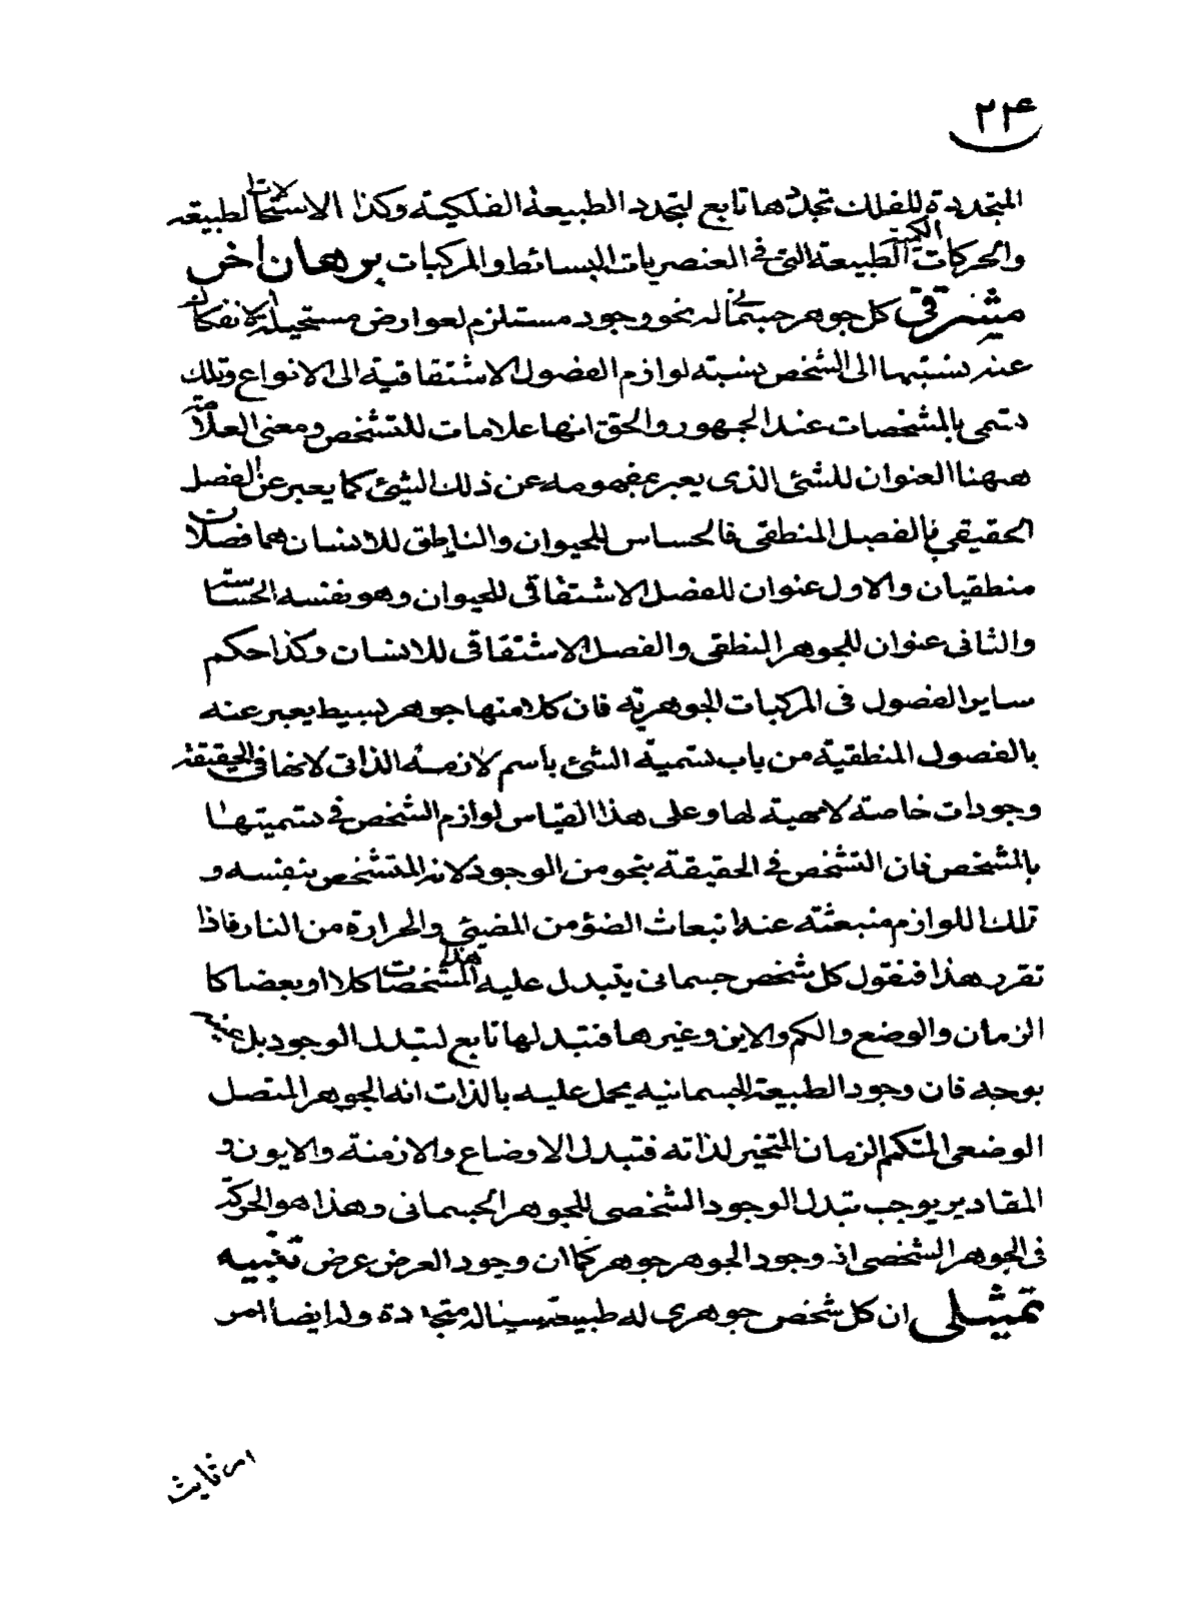 ۲۴
المتجددة للفلك تجددها تابع لتجدد الطبيعة الفلكية وكذا الاستحالات الطبيعة
والحركات الكمية الطبيعة التى فى العنصريات البسائط والمركبات برهان اخر
مشرقى كل جوهر جسمانى له نحو وجود مستلزم لعوارض مستحيلة الانفكاك
عنه نسبتها الى الشخص نسبة لوازم الفصول الاشتقاقية الى الانواع وتلك
تسمى بالمشخصات عند الجمهور والحق انها علامات للتشخص ومعنى العلامة
ههنا العنوان للشئ الذى يعبر بمفهومه عن ذلك الشئ كما يعبر عن الفصل
الحقيقى بالفصل المنطقى فالحساس للحيوان والناطق للانسان هما فصلان
منطقيان والاول عنوان للفصل الاشتقاقى للحيوان وهو نفسه الحساسة
والثانى عنوان للجوهر النطقى والفصل الاشتقاقى للانسان وكذا حكم
ساير الفصول فى المركبات الجوهرية فان كلا منها جوهر بسيط يعبر عنه
بالفصول المنطقية من باب تسمية الشئ باسم لازمه الذاتى لانها فى الحقيقة
وجودات خاصة لا مهية لها وعلى هذا القياس لوازم الشخص فى تسميتها
بالمشخص فان التشخص فى الحقيقة بنحو من الوجود لانه المتشخص بنفسه و
تلك اللوازم منبعثة عنه انبعاث الضوء من المضيئ والحرارة من النار فاذا
تقرر هذا فنقول كل شخص جسمانى يتبدل عليه هذه المشخصات كلا او بعضا كا
الزمان والوضع والكم والاين وغيرها فتبدلها تابع لتبدل الوجود بل عينه
بوجه فان وجود الطبيعة الجسمانيه يحمل عليه بالذات انه الجوهر المتصل
الوضعى المتكمم الزمان المتحيز لذاته فتبدل الاوضاع والازمنة والايون و
المقادير يوجب تبدل الوجود الشخصى للجوهر الجسمانى وهذا هو الحركة
فى الجوهر الشخصى اذ وجود الجوهر جوهر كما ان وجود العرض عرض تنبيه
تمثيلى ان كل شخص جوهرى له طبيعة سيالة متجددة وله ايضا امر
امر ثابت